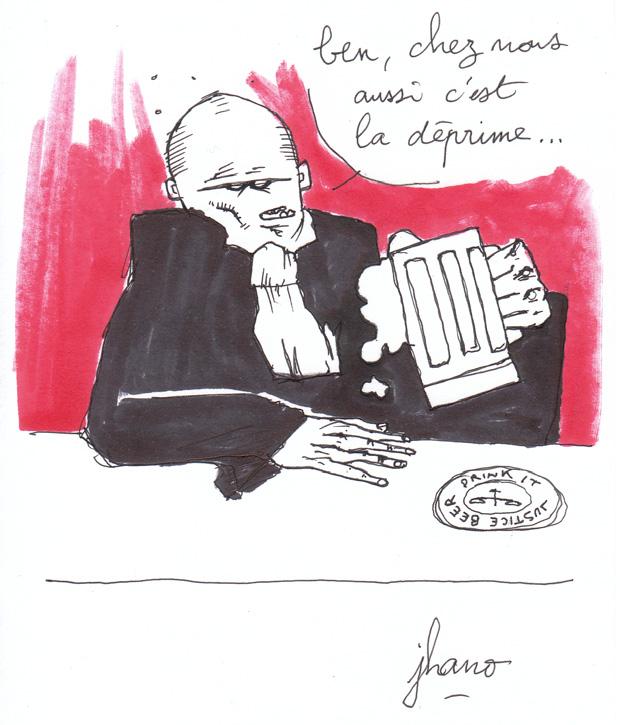 ben, chez nous
aussi c'est
la déprime...
DRINK IT
JUSTICE BEER
jhano